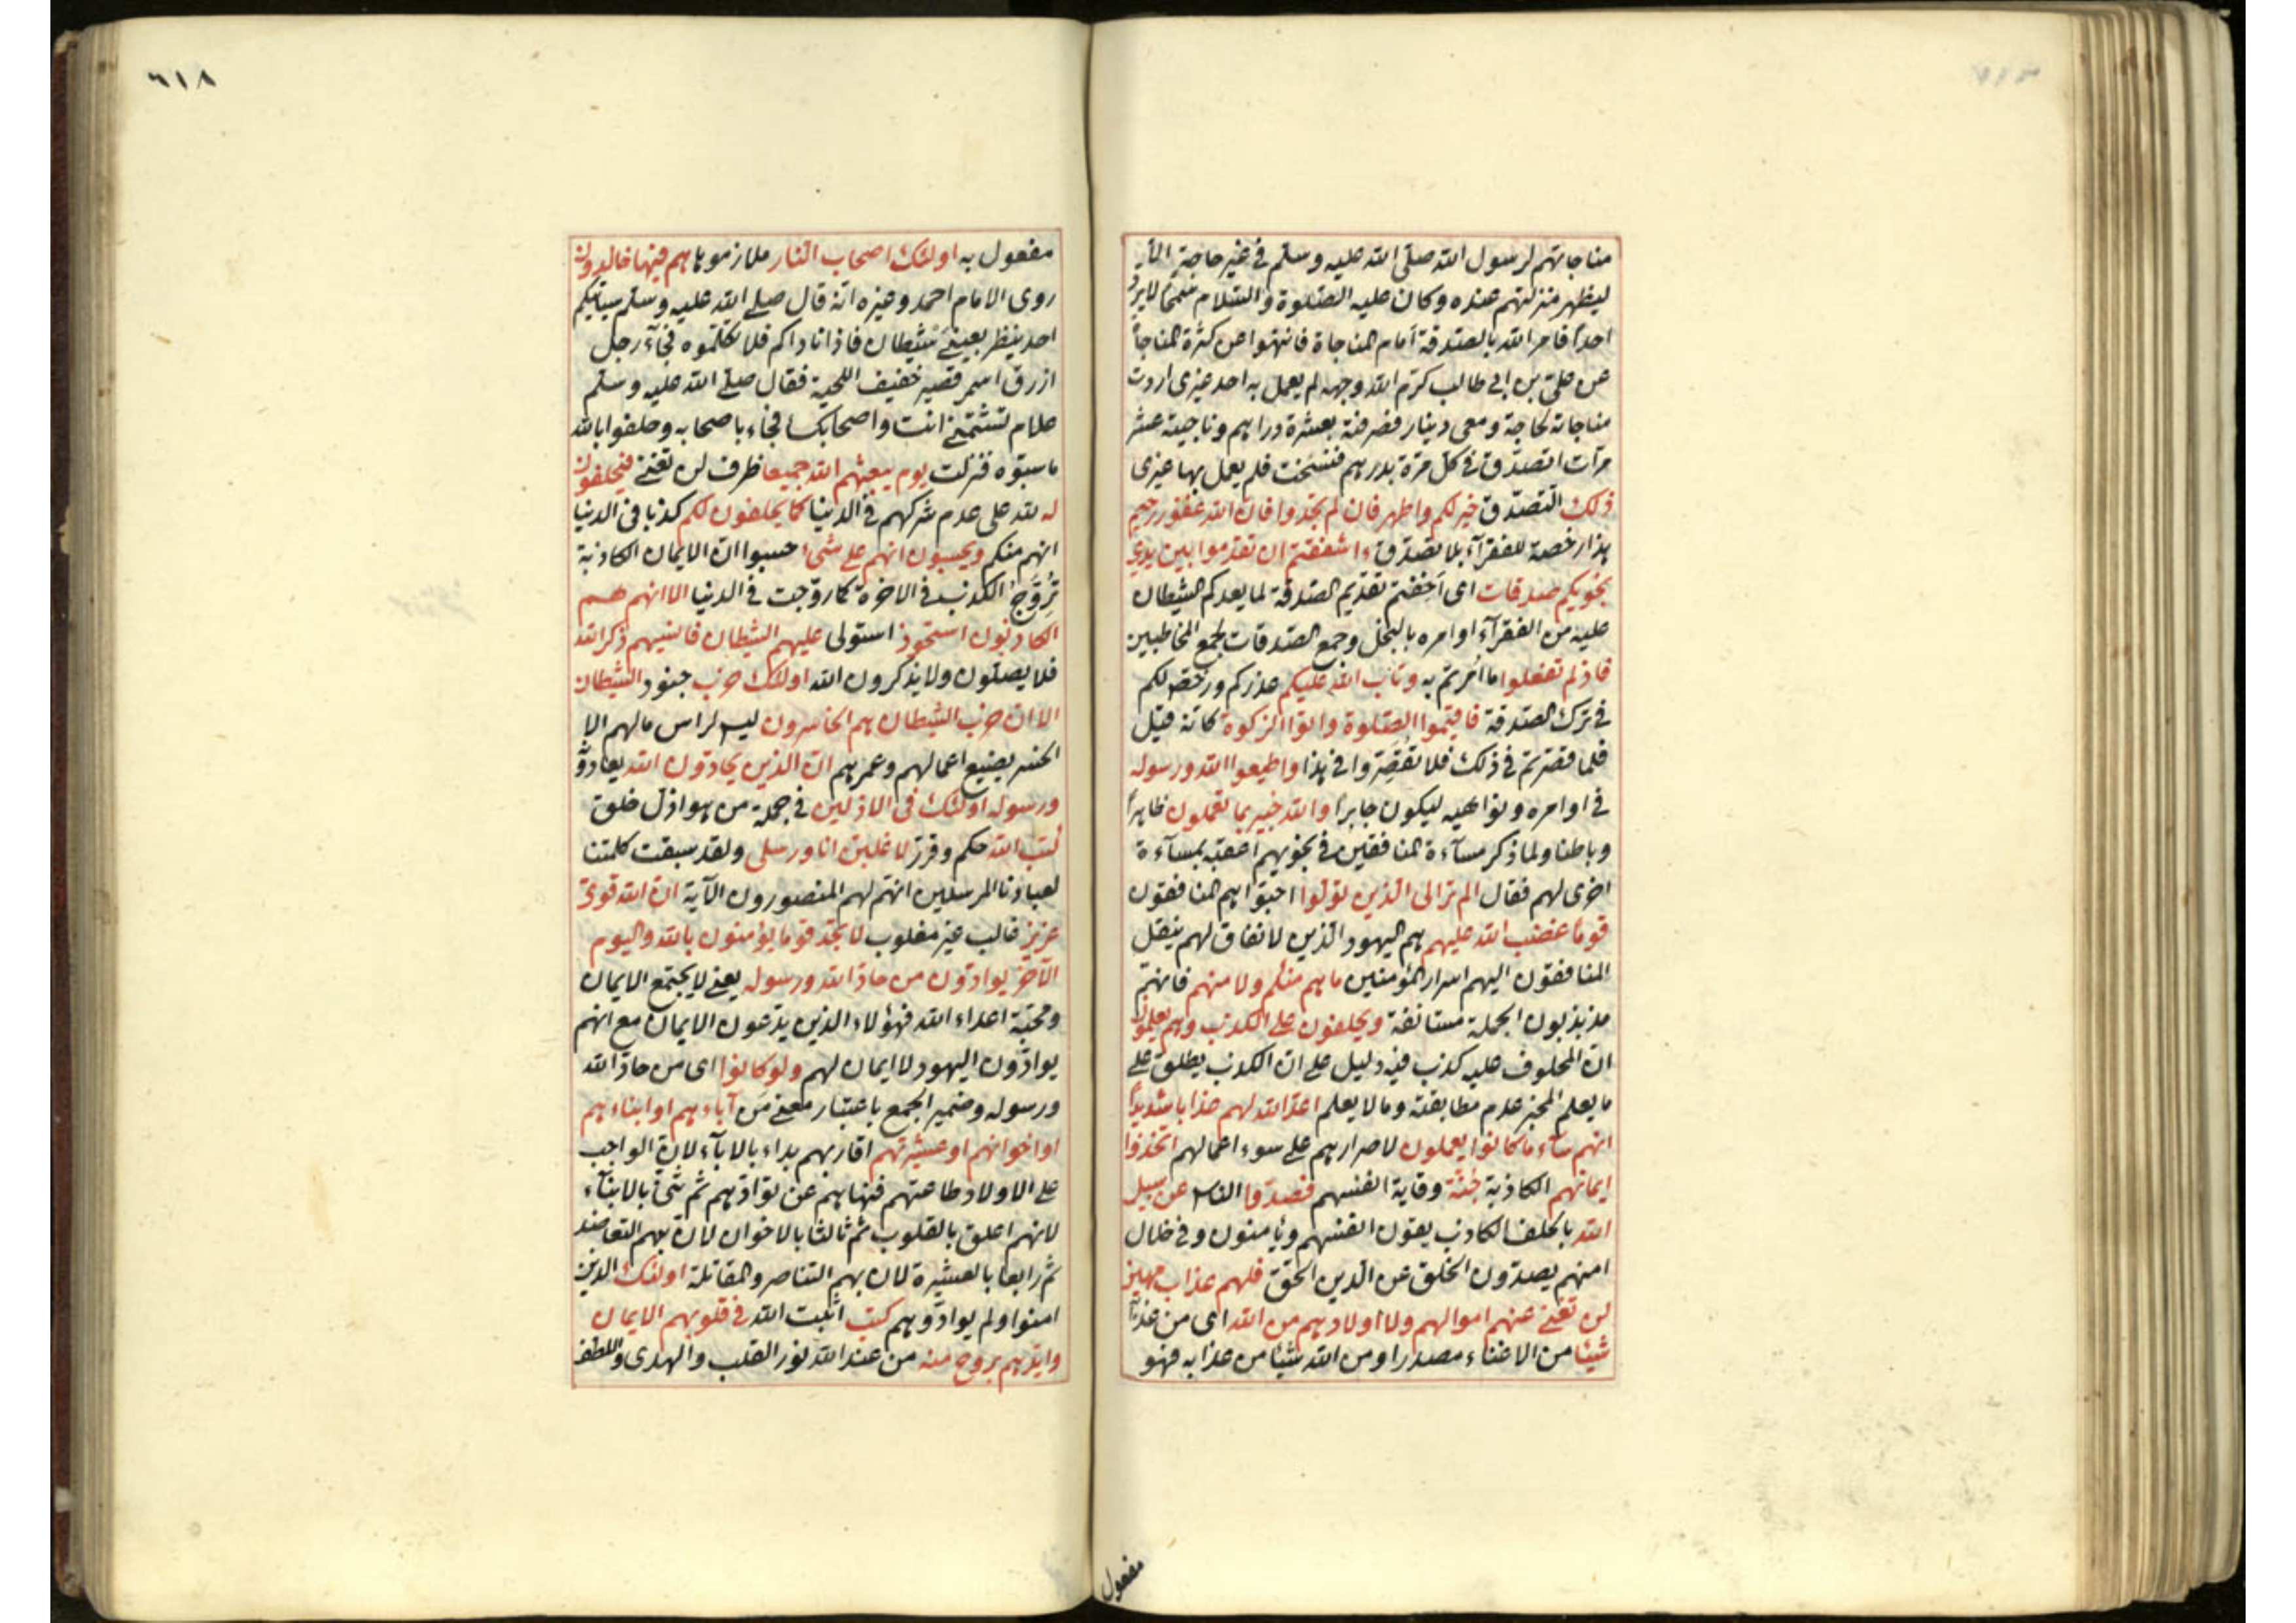 مناجاتهم لرسول الله صلى الله عليه وسلم في غير حاجة الا
ليظهر منزلتهم عنده وكان عليه الصلوة والسلام سمحا لا يرد
احدا فامر الله بالصدقة امام المناجاة فانتهوا عن كثرة المناجاة
عن علي بن ابي طالب كرم الله وجهه لم يعمل به احد غيري اردت
مناجاته لحاجة ومعى دينار فصرفته بعشرة دراهم وناجيته عشر
مرات اتصدق في كل مرة بدرهم فنسخت فلم يعمل بها غيرى
ذلك التصدق خير لكم واطهر فان لم تجدوا فان الله غفور رحيم
هذا رخصة للفقرآء بلا تصدق ءاشفقتم ان تقدموا بين يدي
نجويكم صدقات اى أخفتم تقديم الصدقة لما يعدكم الشيطان
عليه من الفقرآء اوامره بالبخل وجمع الصدقات لجمع المخاطبين
فاذ لم تفعلوا ما امرتم به وتاب الله عليكم عذركم ورخص لكم
في ترك الصدقة فاقيموا الصلوة واتوا الزكوة كانه قيل
فلما قصرتم في ذلك فلا تقصروا في هذا واطيعوا الله ورسوله
في اوامره ونواهيه ليكون جابرا والله خبير بما تعملون ظاهرا
وباطنا ولما ذكر مسآءة المنافقين في نجويهم اعقبه بمسآءة
اخرى لهم فقال الم تر الى الذين تولوا احبوا هم المنافقون
قوما غضب الله عليهم هم اليهود الذين لا نفاق لهم ينقل
المنافقون اليهم اسرار المؤمنين ما هم منكم ولا منهم فانهم
مذبذبون الجملة مستانفة ويحلفون على الكذب وهم يعلمون
ان المحلوف عليه كذب فيه دليل على ان الكذب يطلق على
ما يعلم المخبر عدم مطابقته وما لا يعلم اعد الله لهم عذابا شديدا
انهم سآء ما كانوا يعملون لاصرارهم على سوء اعمالهم اتخذوا
ايمانهم الكاذبة جنة وقاية انفسهم فصدوا الناس عن سبيل
الله بالحلف الكاذب يقون انفسهم ويامنون وفي خلال
امنهم يصدون الخلق عن الدين الحق فلهم عذاب مهين
لن تغني عنهم اموالهم ولا اولادهم من الله اى من عذابه
شيئا من الاغناء مصدر او من الله شيئا من عذابه فهو
مفعول
٦١٨
مفعول به اولئك اصحاب النار ملازموها هم فيها خالدون
روى الامام احمد وغيره انه قال صلى الله عليه وسلم سياتيكم
احد ينظر بعيني شيطان فاذا اتاكم فلا تكلموه فجآء رجل
ازرق اسمر قصير خفيف اللحية فقال صلى الله عليه وسلم
علام تشتمني انت واصحابك فجاء باصحابه وحلفوا بالله
ما سبوه فنزلت يوم يبعثهم الله جميعا ظرف لن تغني فيحلفون
له لله على عدم شركهم في الدنيا كما يحلفون لكم كذبا في الدنيا
انهم منكم ويحسبون انهم على شيء حسبوا ان الايمان الكاذبة
تروج الكذب في الاخرة كما روجت في الدنيا الا انهم هم
الكاذبون استحوذ استولى عليهم الشيطان فانسيهم ذكر الله
فلا يصلون ولا يذكرون الله اولئك حزب جنود الشيطان
الا ان حزب الشيطان هم الخاسرون ليس لراس مالهم الا
الخسر بضيع اعمالهم وعمرهم ان الذين يحادون الله يعادون
ورسوله اولئك في الاذلين في جملة من هو اذل خلق
كتب الله حكم وقرر لاغلبن انا ورسلى ولقد سبقت كلمتنا
لعبادنا المرسلين انهم لهم المنصورون الآية ان الله قوى
عزيز غالب غير مغلوب لا تجد قوما يؤمنون بالله واليوم
الآخر يوادون من حاد الله ورسوله يعني لا يجتمع الايمان
ومحبة اعداء الله فهؤلاء الذين يدعون الايمان مع انهم
يوادون اليهود لا ايمان لهم ولو كانوا اى من حاد الله
ورسوله وضمير الجمع باعتبار معنى من آباءهم او ابناءهم
او اخوانهم او عشيرتهم اقاربهم بداء بالابآء لان الواجب
على الاولاد طاعتهم فنهاهم عن توادهم ثم ثنى بالابنآء
لانهم اعلق بالقلوب ثم ثالثا بالاخوان لان بهم التعاضد
ثم رابعا بالعشيرة لان بهم التناصر والمقاتلة اولئك الذين
امنوا ولم يوادوهم كتب اثبت الله في قلوبهم الايمان
وايدهم بروح منه من عند الله نور القلب والهدى واللطف